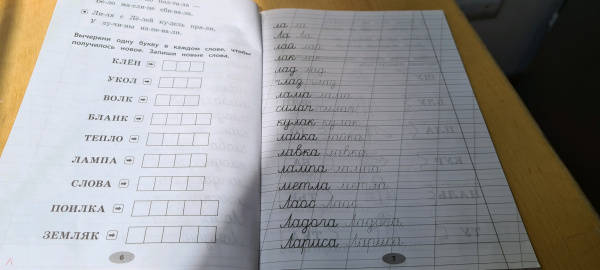 Бе-ло мя-ли-це сби-ва-ла.
Ли-ля с Ле-лей ку-дель пря-ли,
У лу-чи-ны на-пе-ва-ли.
Вычеркни одну букву в каждом слове, чтобы
получилось новое. Запиши новые слова.
КЛЁН
УКОЛ
ВОЛК
БЛАНК
ТЕПЛО
ЛАМПА
СЛОВА
ПОИЛКА
ЗЕМЛЯК
6
ла ла
Ла Ла
лай
лак
лад лад
глаз глаз
лама лама
силач силач
кулак кулак
лайка лайка
лавка лавка
лампа лампа
метла метла
Лаос Лаос
Ладога Ладога
Лариса Лариса
7